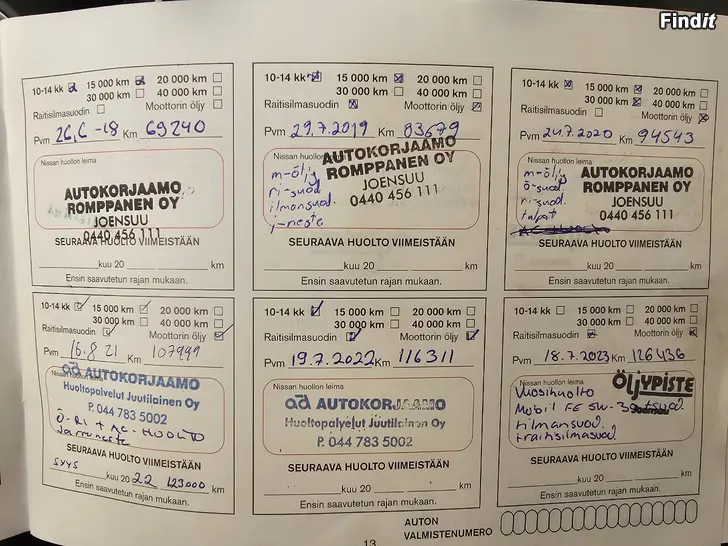 Findit
10-14 kk 15 000 km 20 000 km
30 000 km 40 000 km
Raitisilmasuodin Moottorin öljy
Pvm 26.6 -18 Km 69240
Nissan huollon leima
AUTOKORJAAMO
ROMPPANEN OY
JOENSUU
0440 456 111
SEURAAVA HUOLTO VIIMEISTÄÄN
kuu 20 km
Ensin saavutetun rajan mukaan.
10-14 kk 15 000 km 20 000 km
30 000 km 40 000 km
Raitisilmasuodin Moottorin öljy
Pvm 29.7.2019 Km 83679
Nissan huollon leima
AUTOKORJAAMO
ROMPPANEN OY
JOENSUU
0440 456 111
m-öljy
ri-suod
ilmansuod.
j-neste
SEURAAVA HUOLTO VIIMEISTÄÄN
kuu 20 km
Ensin saavutetun rajan mukaan.
10-14 kk 15 000 km 20 000 km
30 000 km 40 000 km
Raitisilmasuodin Moottorin öljy
Pvm 24.7.2020 Km 94543
Nissan huollon leima
AUTOKORJAAMO
ROMPPANEN OY
JOENSUU
0440 456 111
m-öljy
ö-suod
ri-suod.
tulpat
SEURAAVA HUOLTO VIIMEISTÄÄN
kuu 20 km
Ensin saavutetun rajan mukaan.
10-14 kk 15 000 km 20 000 km
30 000 km 40 000 km
Raitisilmasuodin Moottorin öljy
Pvm 16.8 21 Km 107999
Nissan huollon leima
ad AUTOKORJAAMO
Huoltopalvelut Juutilainen Oy
P. 044 783 5002
Ö-RI + AC-HUOLTO
Jarruneste
SEURAAVA HUOLTO VIIMEISTÄÄN
syys kuu 20 22 123000 km
Ensin saavutetun rajan mukaan.
10-14 kk 15 000 km 20 000 km
30 000 km 40 000 km
Raitisilmasuodin Moottorin öljy
Pvm 19.7.2022 Km 116311
Nissan huollon leima
ad AUTOKORJAAMO
Huoltopalvelut Juutilainen Oy
P. 044 783 5002
SEURAAVA HUOLTO VIIMEISTÄÄN
kuu 20 km
Ensin saavutetun rajan mukaan.
10-14 kk 15 000 km 20 000 km
30 000 km 40 000 km
Raitisilmasuodin Moottorin öljy
Pvm 18.7.2023 Km 126436
Nissan huollon leima
ÖLJYPISTE
Joensuu
Vuosihuolto
Mobil FE 5W-30
ilmansuod.
+raitisilmasuod.
SEURAAVA HUOLTO VIIMEISTÄÄN
kuu 20 km
Ensin saavutetun rajan mukaan.
13
AUTON
VALMISTENUMERO